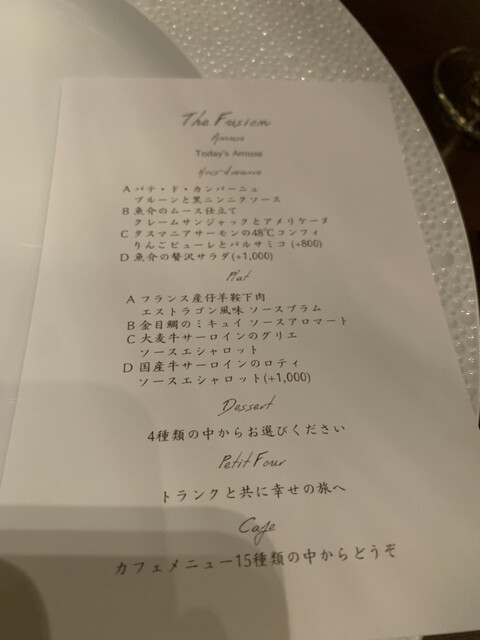 The Fusion
Amuse
Today's Amuse
Hors-d'oeuvre
A パテ・ド・カンパーニュ
プルーンと黒ニンニクソース
B 魚介のムース仕立て
クレームサンジャックとアメリケーヌ
C タスマニアサーモンの48℃コンフィ
りんごピューレとバルサミコ (+800)
D 魚介の贅沢サラダ(+1,000)
Plat
A フランス産仔羊鞍下肉
エストラゴン風味 ソースプラム
B 金目鯛のミキュイ ソースアロマート
C 大麦牛サーロインのグリエ
ソースエシャロット
D 国産牛サーロインのロティ
ソースエシャロット(+1,000)
Dessert
4種類の中からお選びください
Petit Four
トランクと共に幸せの旅へ
Cafe
カフェメニュー15種類の中からどうぞ